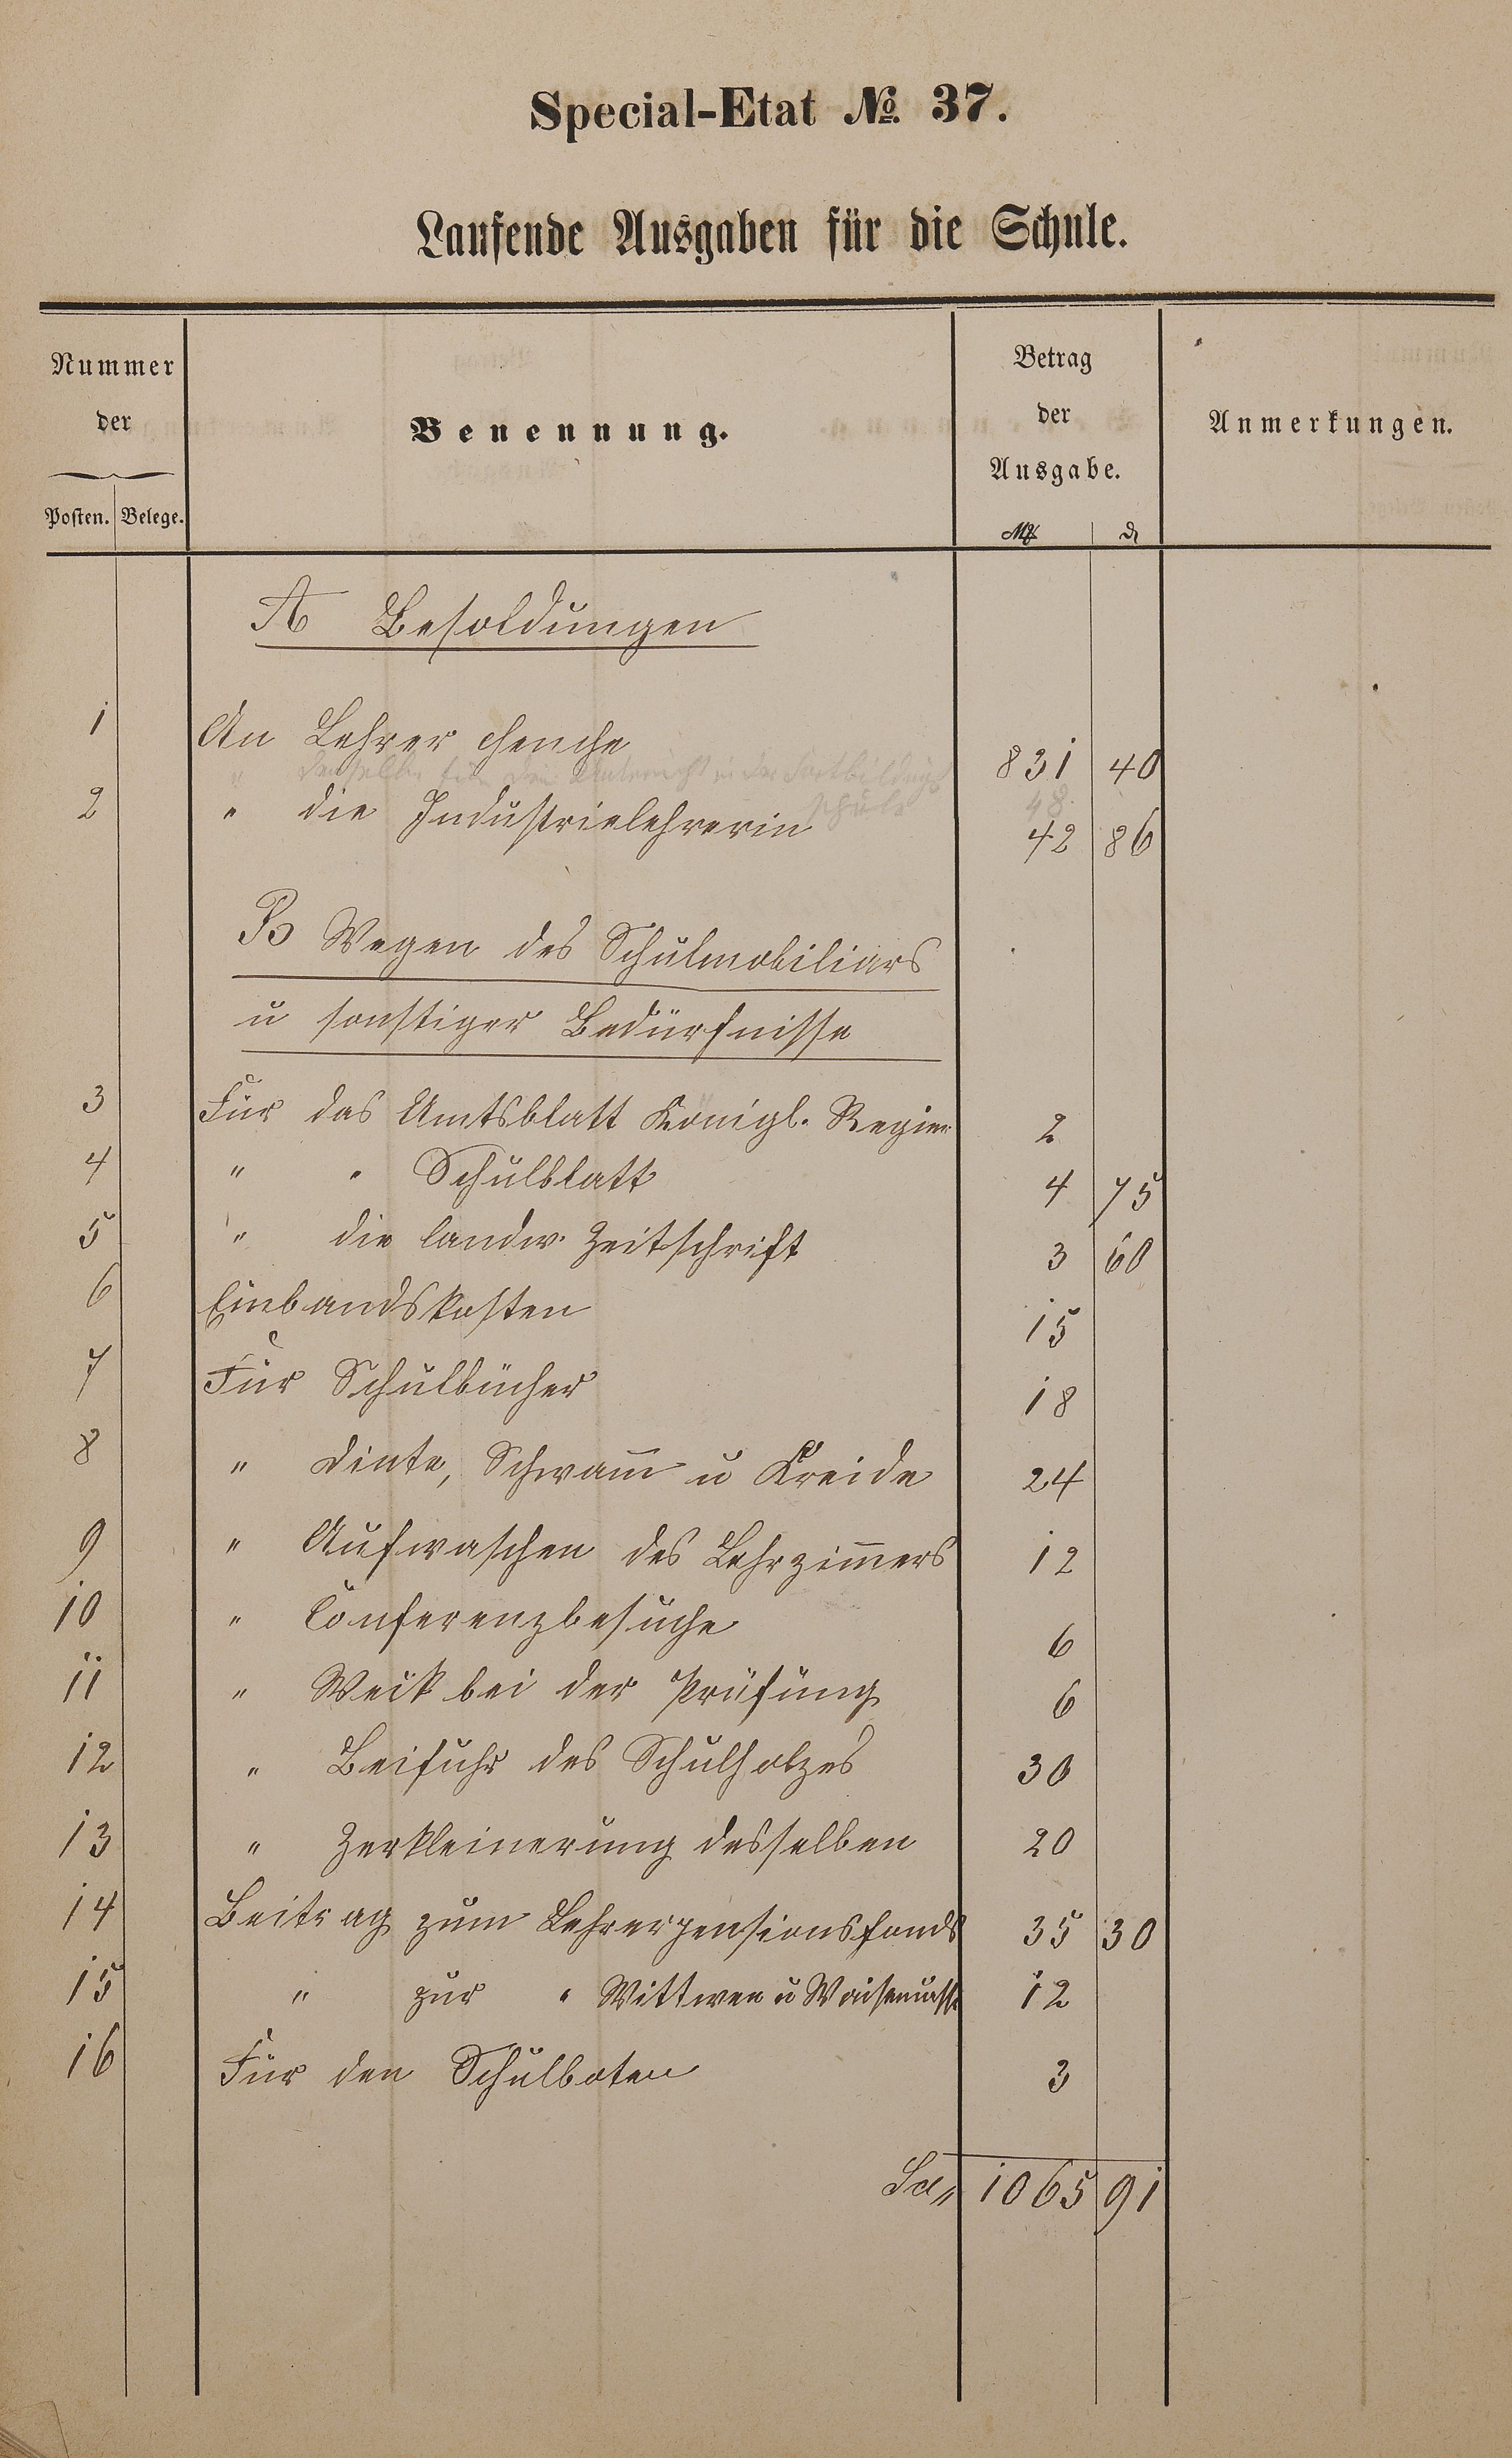 Special-Etat № 37.
Laufende Ausgaben für die Schule.
Nummer
der
Posten. Belege.
Benennung.
Betrag
der
Ausgabe.
M₰ ₰
Anmerkungen.
A Besoldungen
1 An Lehrer 831 40
" denselben für den Unterricht in der Fortbildungs
schule 48
2 " die Industrielehrerin 42 86
B Wegen des Schulmobiliars
u sonstiger Bedürfnisse
3 Für das Amtsblatt Königl. Regier 2
4 " " Schulblatt 4 75
5 " die landw. Zeitschrift 3 60
6 Einbandskosten 15
7 Für Schulbücher 18
8 " Dinte, Schwam̄ u Kreide 24
9 " Aufwaschen des Lehrzim̄ers 12
10 " Conferenzbesuche 6
11 " Weik bei der Prüfung 6
12 " Beifuhr des Schulholzes 30
13 " Zerkleinerung desselben 20
14 Beitrag zum Lehrerpensionsfonds 35 30
15 " zur " Wittwen u Waisenkasse 12
16 Für den Schulboten 3
Sa" 1065 91